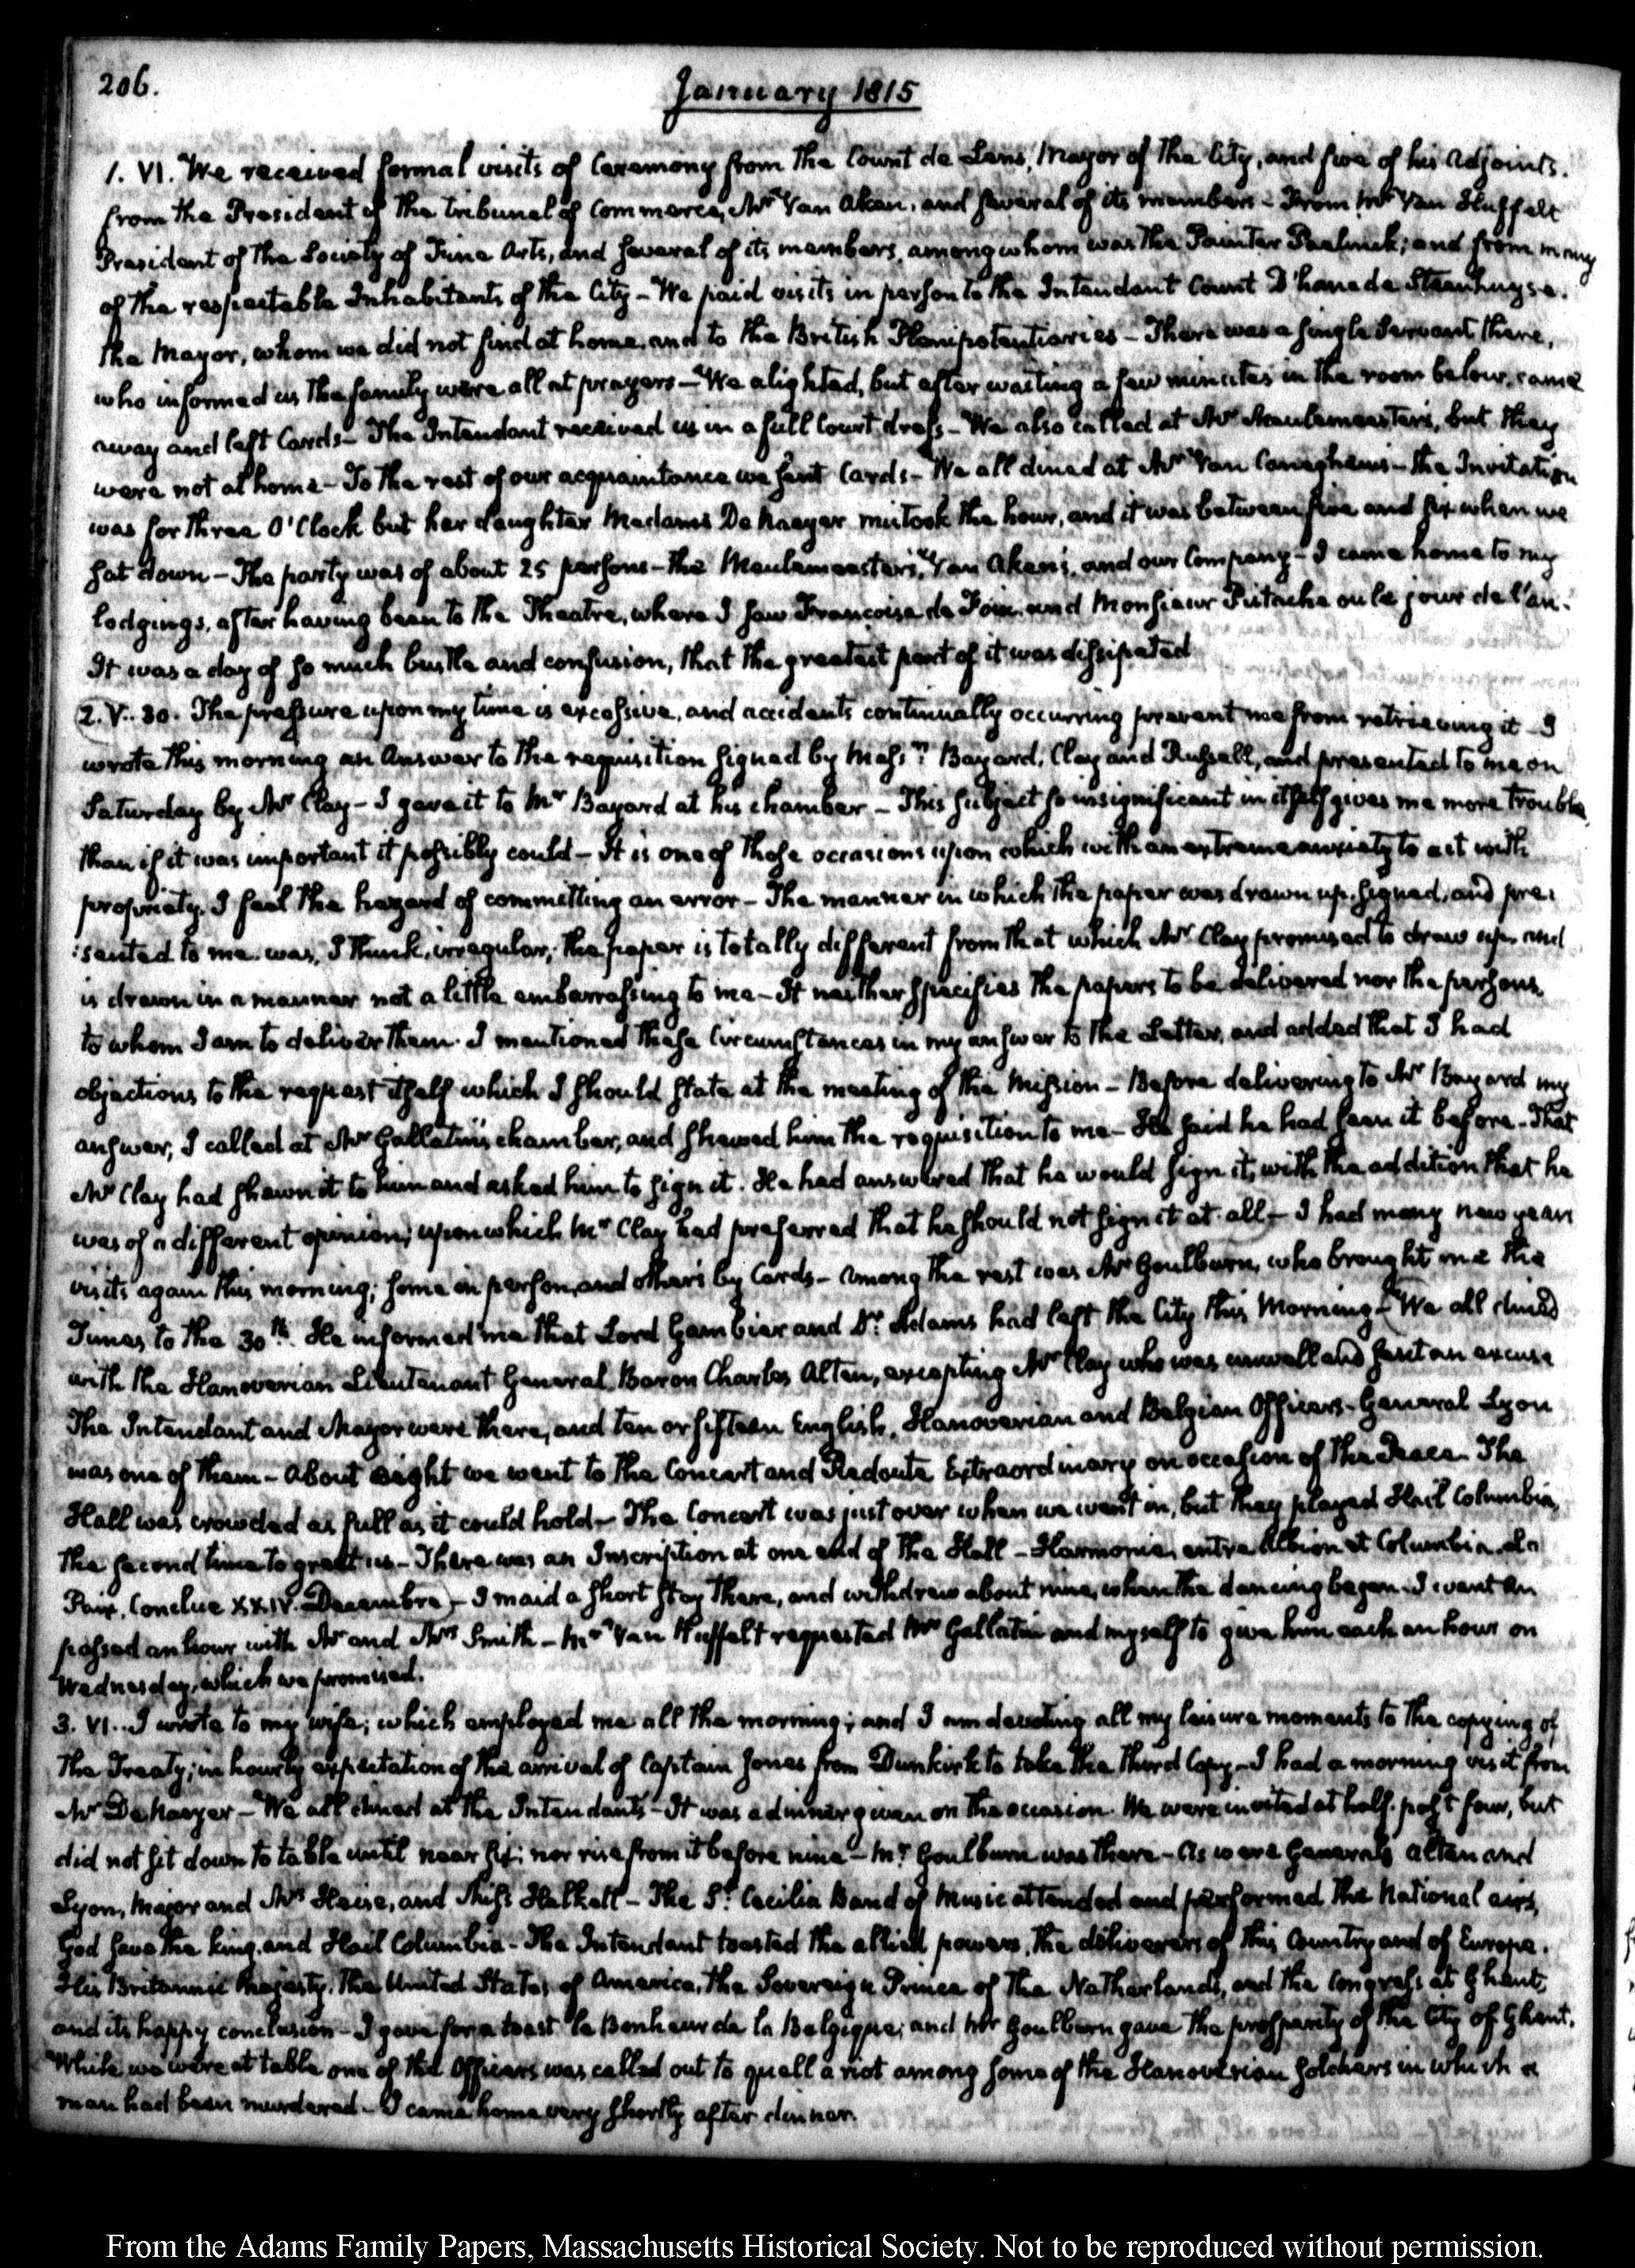 206.
January 1815
1. VI. We received formal visits of Ceremony from the Count de Lens, Mayor of the City, and five of his Adjoints.
from the President of the Tribunal of Commerce, Mr Van Aken, and several of its members - From Mr Van Huffelt
President of the Society of Fine Arts, and several of its members, among whom was the Painter Paelinck; and from many
of the respectable Inhabitants of the City - We paid visits in person to the Intendant Count D'hane de Steenhuyse.
the Mayor, whom we did not find at home, and to the British Plenipotentiaries - There was a single Servant there,
who informed us the family were all at prayers - We alighted, but after waiting a few minutes in the room below, came
away and left Cards - The Intendant received us in a full Court dress - We also called at Mr Meulemeester's, but they
were not at home - To the rest of our acquaintance we sent Cards - We all dined at Mr Van Caneghem's - the Invitation
was for three O'Clock but her daughter Madame De Naeyer mistook the hour, and it was between five and six when we
sat down - The party was of about 25 persons - the Meulemeester's, Van Aken's, and our Company - I came home to my
lodgings, after having been to the Theatre, where I saw Francoise de Foix, and Monsieur Pistache ou le jour de l'an.
It was a day of so much bustle and confusion, that the greatest part of it was dissipated
2. V. 30. The pressure upon my time is excessive, and accidents continually occurring prevent me from retrieving it - I
wrote this morning an Answer to the requisition signed by Messrs Bayard, Clay and Russell, and presented to me on
Saturday by Mr Clay - I gave it to Mr Bayard at his chamber - This subject so insignificant in itself gives me more trouble
than if it was important it possibly could - It is one of those occasions upon which with an extreme anxiety to act with
propriety, I feel the hazard of committing an error - The manner in which the paper was drawn up, signed, and pre:
:sented to me was, I think, irregular; the paper is totally different from that which Mr Clay promised to draw up, and
is drawn in a manner not a little embarrassing to me - It neither specifies the papers to be delivered nor the persons
to whom I am to deliver them. I mentioned these Circumstances in my answer to the Letter, and added that I had
objections to the request itself which I should state at the meeting of the Mission - Before delivering to Mr Bayard my
answer, I called at Mr Gallatin's chamber, and shewed him the requisition to me - He said he had seen it before - That
Mr Clay had shewn it to him and asked him to sign it. He had answered that he would sign it, with the addition that he
was of a different opinion; upon which Mr Clay had preferred that he should not sign it at all - I had many new years
visits again this morning; some in person, and others by Cards - Among the rest was Mr Goulburn, who brought me the
Times to the 30th. He informed me that Lord Gambier and Dr Adams had left the City this Morning - We all dined
with the Hanoverian Lieutenant General Baron Charles Alten, excepting Mr Clay who was unwell and sent an excuse
The Intendant and Mayor were there, and ten or fifteen English, Hanoverian and Belgian Officers - General Lyon
was one of them - About eight we went to the Concert and Redoute Extraordinary on occasion of the Peace. The
Hall was crowded as full as it could hold - The Concert was just over when we went in, but they played Hail Columbia,
the second time to greet us - There was an Inscription at one end of the Hall - Harmonie, entre Albion et Columbia. La
Paix, Conclue XXIV. Decembre - I maid a short stay there, and withdrew about nine, when the dancing began. I went an
passed an hour with Mr and Mrs Smith - Mr Van Huffelt requested Mr Gallatin and myself to give him each an hour on
Wednesday, which we promised.
3. VI. I wrote to my wife; which employed me all the morning; and I am devoting all my leisure moments to the copying of
the Treaty; in hourly expectation of the arrival of Captain Jones from Dunkirk to take the third Copy - I had a morning visit from
Mr De Naeyer - We all dined at the Intendant's - It was a dinner given on the occasion. We were invited at half past four, but
did not sit down to table until near six; nor rise from it before nine - Mr Goulburn was there - As were Generals Alten and
Lyon, Major and Mrs Heise, and Miss Halkett - The St Cecilia Band of Music attended and performed the National airs,
God save the king, and Hail Columbia - The Intendant toasted the allied powers, the deliverers of this Country and of Europe.
His Britannic Majesty. The United States of America, the Sovereign Prince of the Netherlands, and the Congress at Ghent,
and its happy conclusion - I gave for a toast le Bonheur de la Belgique; and Mr Goulburn gave the prosperity of the City of Ghent.
While we were at table one of the Officers was called out to quell a riot among some of the Hanoverian Soldiers in which a
man had been murdered - I came home very shortly after dinner.
From the Adams Family Papers, Massachusetts Historical Society. Not to be reproduced without permission.